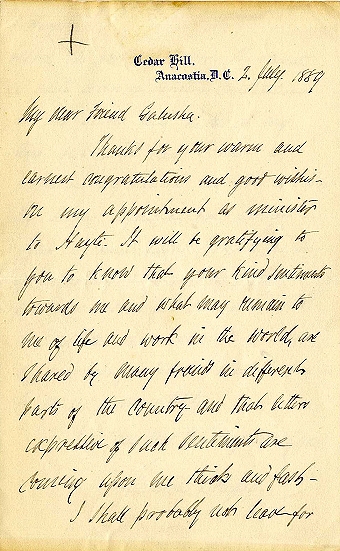 Cedar Hill,
Anacostia, D.C. 2. July. 1889
My dear Friend Galusha.
Thanks for your warm and
earnest congratulations and good wishes-
on my appointment as minister
to Hayti. It will be gratifying to
you to know that your kind sentiments
towards me and what may remain to
me of life and work in the world, are
shared by many friends in different
parts of the country and that letters
expressive of such sentiments are
coming upon me thick and fast-
I shall probably not leave for